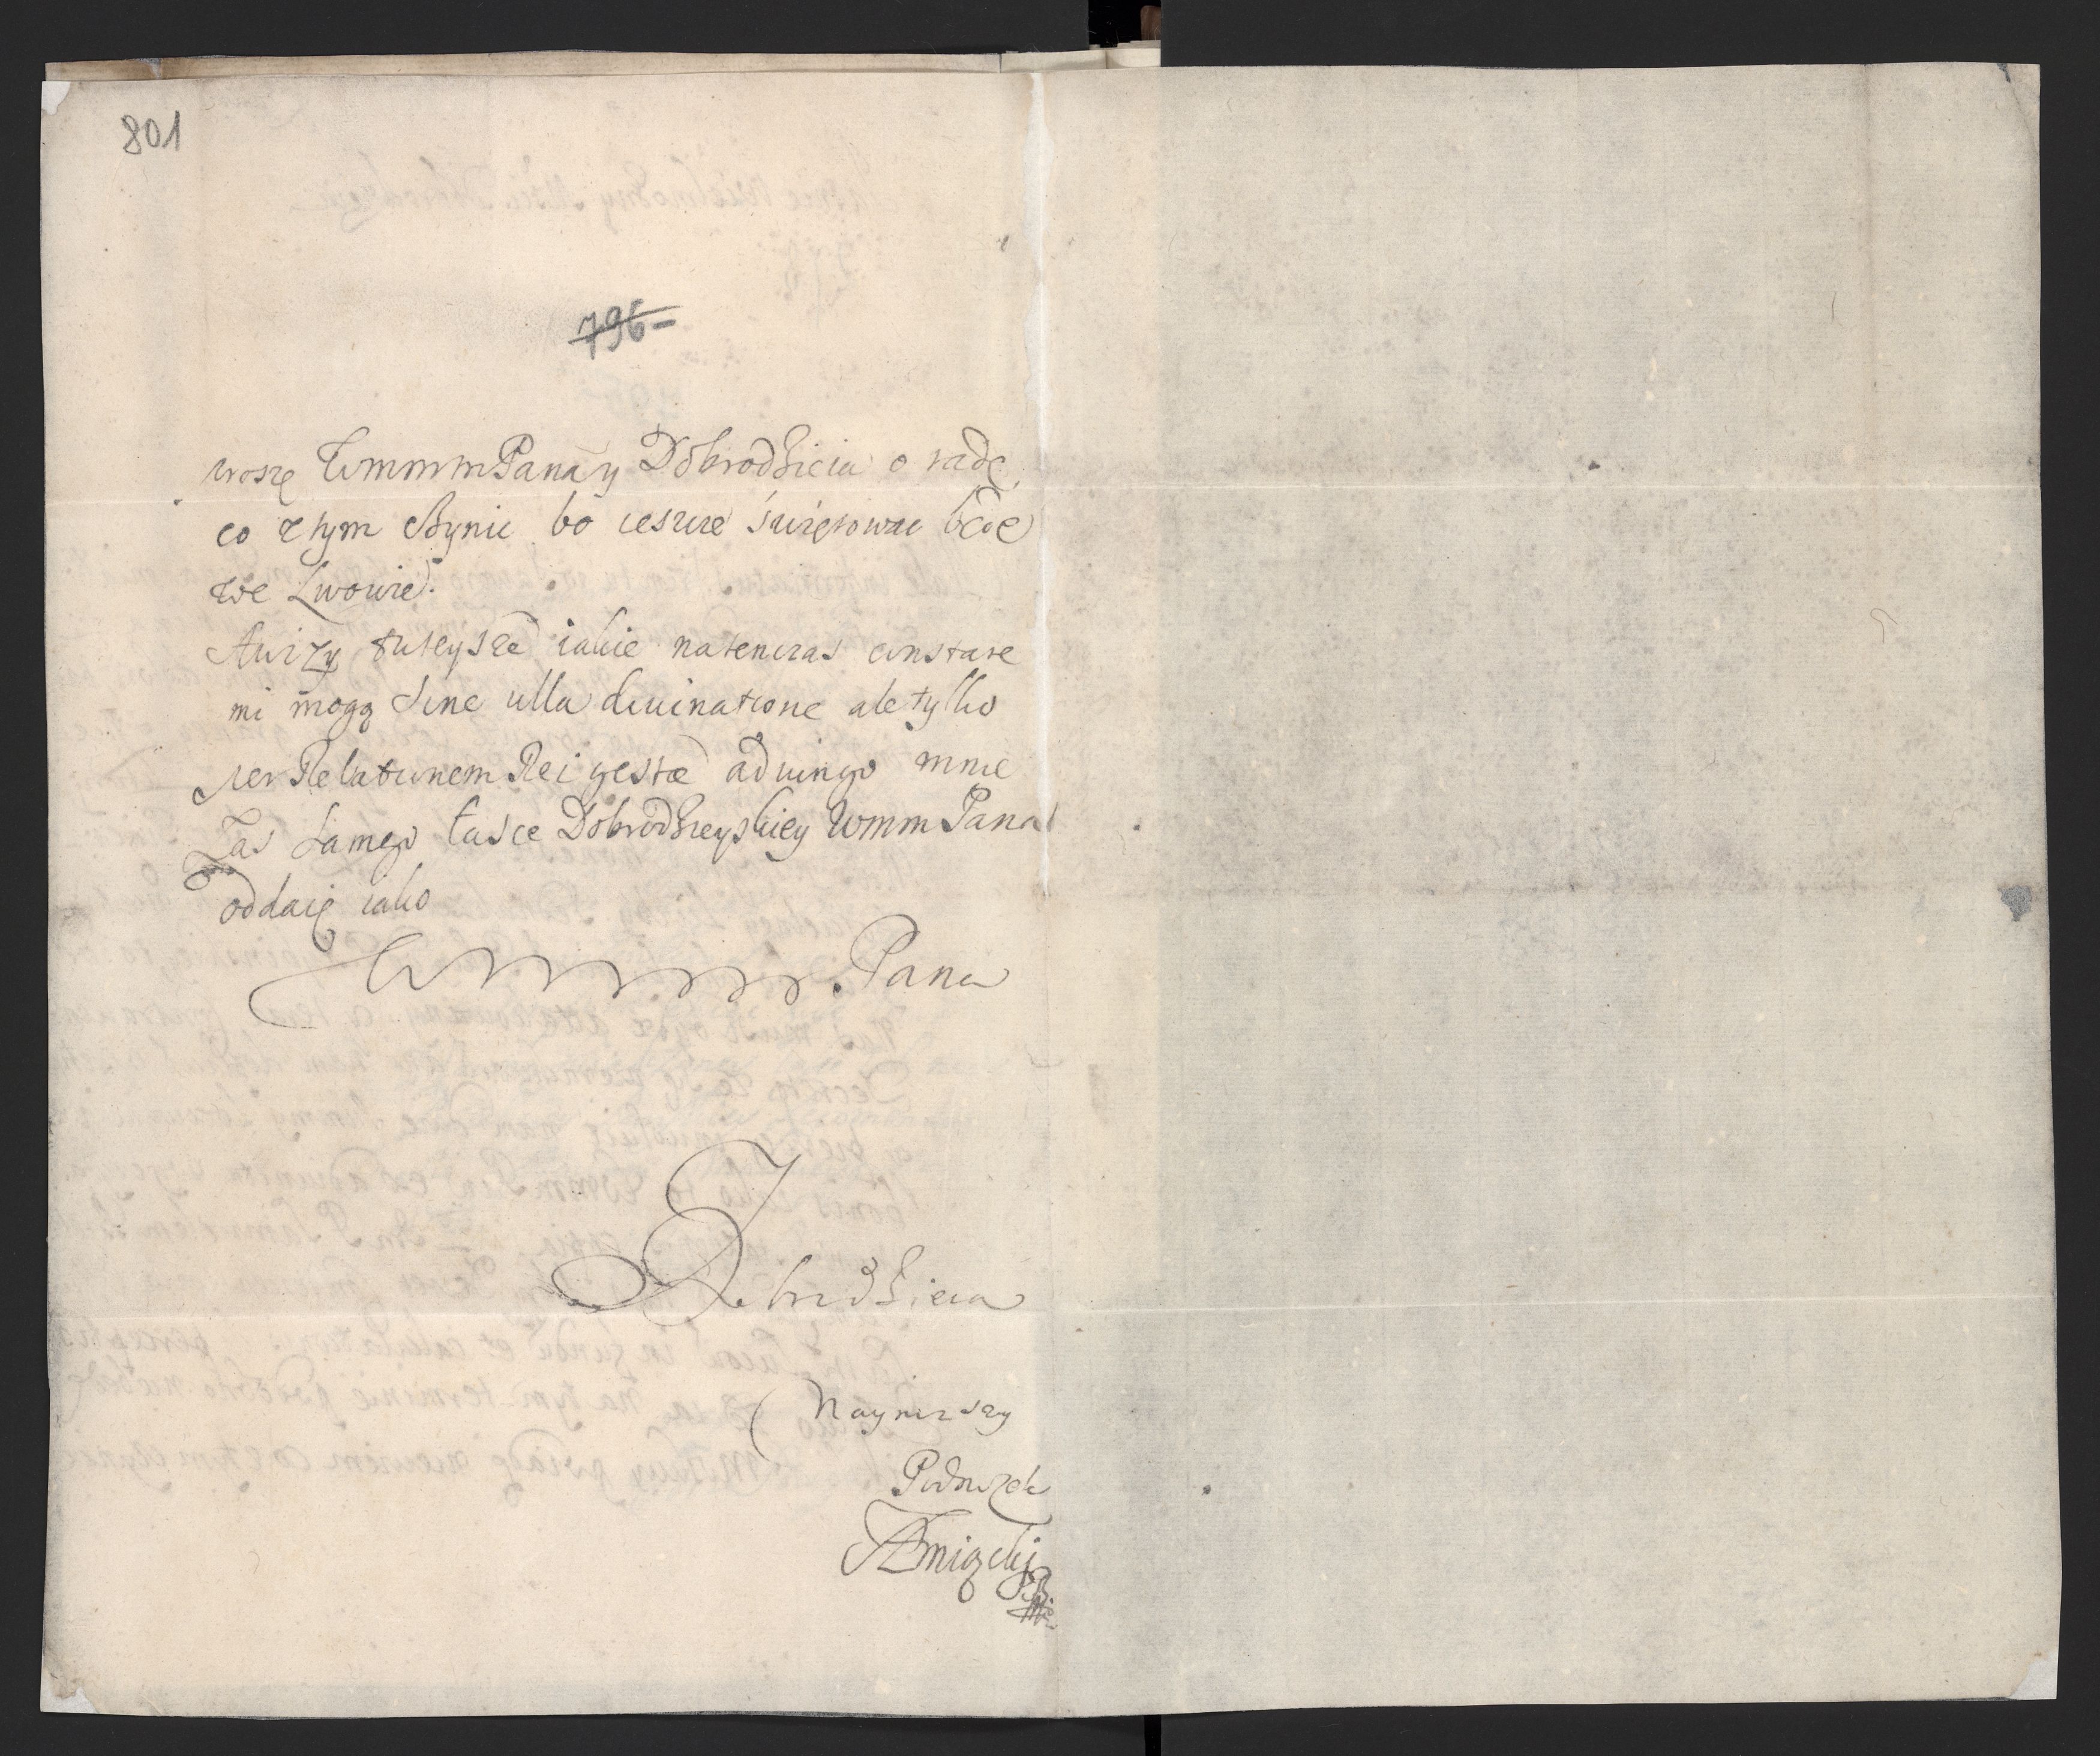 801
796
prosze WmmmPana y Dobrodzieia o radę,
co z tym czynic bo ieszcze swiętowac będę
we Lwowie.
Awizy tuteysze iakie natenczas constare
mi mogą sine ulla diuinatione ale tylko
per Relationem Rei gestæ adiungo mnie
Zas samego łasce Dobrodzieyskiey WmmPana
oddaię iako
Wmmm Pana
Dobrodzieia
Nayniszszy
Podnozek